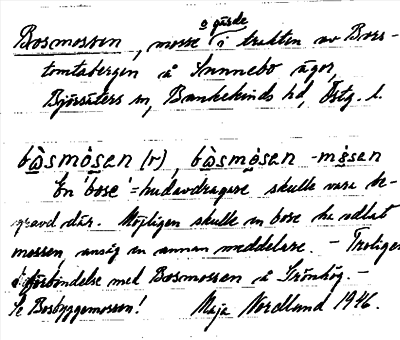 o gärde
Bosmossen, mosse i trakten av Bors-
tomtabergen å Sunnebo ägor,
Björsäters sn, Bankekinds hd, Östg. l.
bo̱smo̱sen (r), bo̱smo̱sen -mo̱sen
En 'bose' = hudavdragare skulle vara be-
gravd där. Möjligen skulle en bose ha vållat
mossen, ansåg en annan meddelare. – Troligen
i förbindelse med Bosmossen å Strönhög. –
Se Bosbyggemossen! Maja Nordlund 1946.